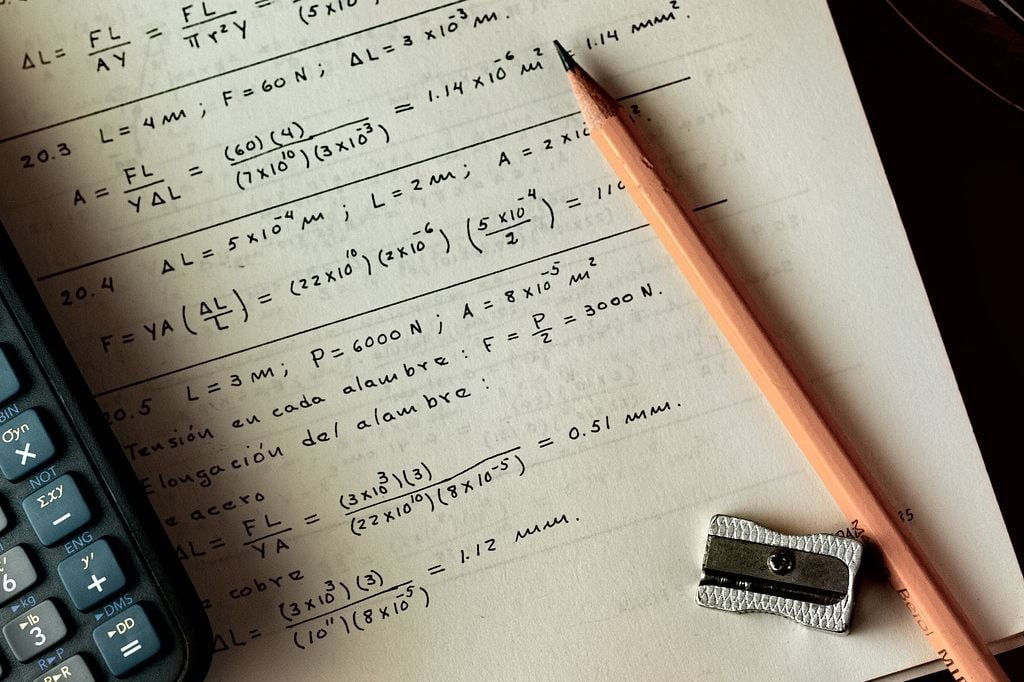 ΔL = FL/AY = FL/πr²Y = (5×10
20.3 L = 4 m ; F = 60 N ; ΔL = 3 ×10⁻³ m.
A = FL/YΔL = (60)(4)/(7×10¹⁰)(3×10⁻³) = 1.14 ×10⁻⁶ m² = 1.14 mm².
20.4 ΔL = 5 ×10⁻⁴ m ; L = 2 m ; A = 2 ×10
F = YA (ΔL/L) = (22×10¹⁰)(2×10⁻⁶) (5×10⁻⁴/2) = 110
20.5 L = 3 m ; P = 6000 N ; A = 8×10⁻⁵ m²
Tensión en cada alambre : F = P/2 = 3000 N.
Elongación del alambre :
e acero
ΔL = FL/YA = (3×10³)(3)/(22×10¹⁰)(8×10⁻⁵) = 0.51 mm.
cobre
ΔL = (3×10³)(3)/(10¹¹)(8×10⁻⁵) = 1.12 mm.
BIN
σyn
×
NOT
Σxy
−
ENG
y'
+
6
►kg
►lb
3
►DMS
►DD
=
R►P
P►R
Berol MIR